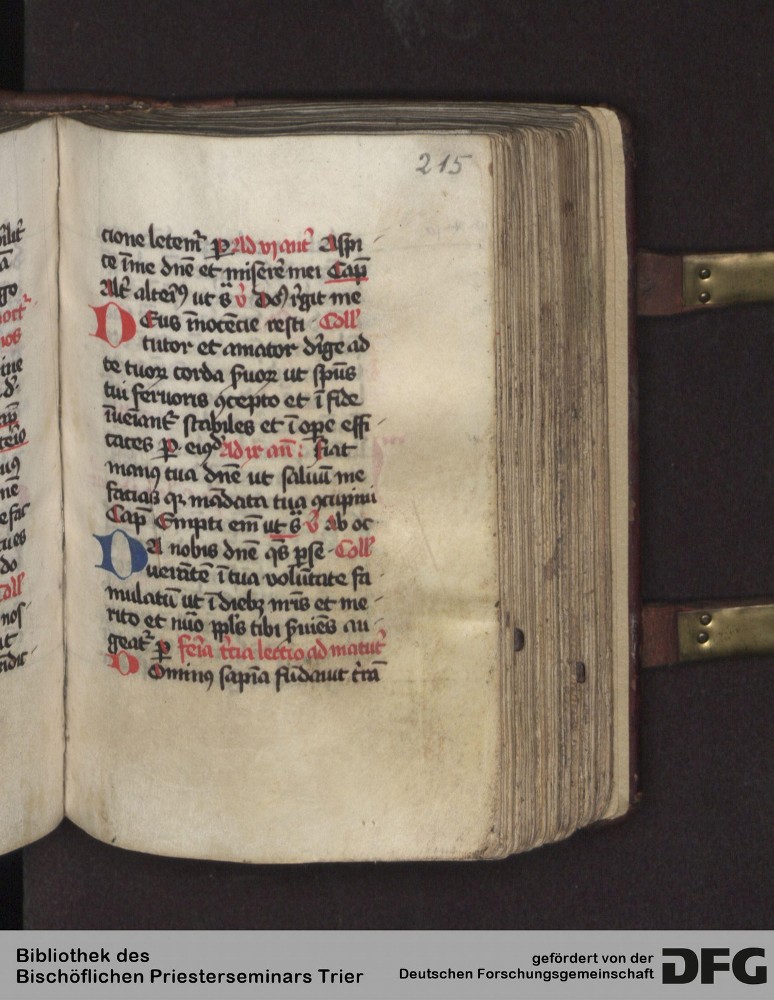 215
cione letem᷑ ꝑ Ad vj ant᷑ Aspi
ce ī me dn̄e et miserē mei Cap̄
Alt᷑ alteri᷒ ut s̄ v̄ Dn̄s rͥgit me
Deus īnocēcie resti Coll᷑
tutor et amator dͥge ad
te tuoꝝ corda ẜuoꝝ ut sp̄us
tui feruoris ꝯcepto et ī fide
īueiant᷑ stabiles et ī ope effi
caces ꝑ eiꝰd᷑ Ad ix an̄ : fiat
manꝰ tua dn̄e ut saluū me
facias qꝛ mādata tua
Cap̄ Empti em̄ ut s̄ v̄ Ab oc
Da nobis dn̄e q̄s ꝑse Coll᷑
uerātē ī tua volūtate fa
mulatū ut ī diebꝫ nr̄is et me
rito et nūo ppl̄s tibi ẜuiēs au
geat᷑ ꝑ feͥa t͛cia lectio ad matut᷑
Dominꝰ sapīa fūdauit t͛rā
Bibliothek des
Bischöflichen Priesterseminars Trier
gefördert von der
Deutschen Forschungsgemeinschaft
DFG